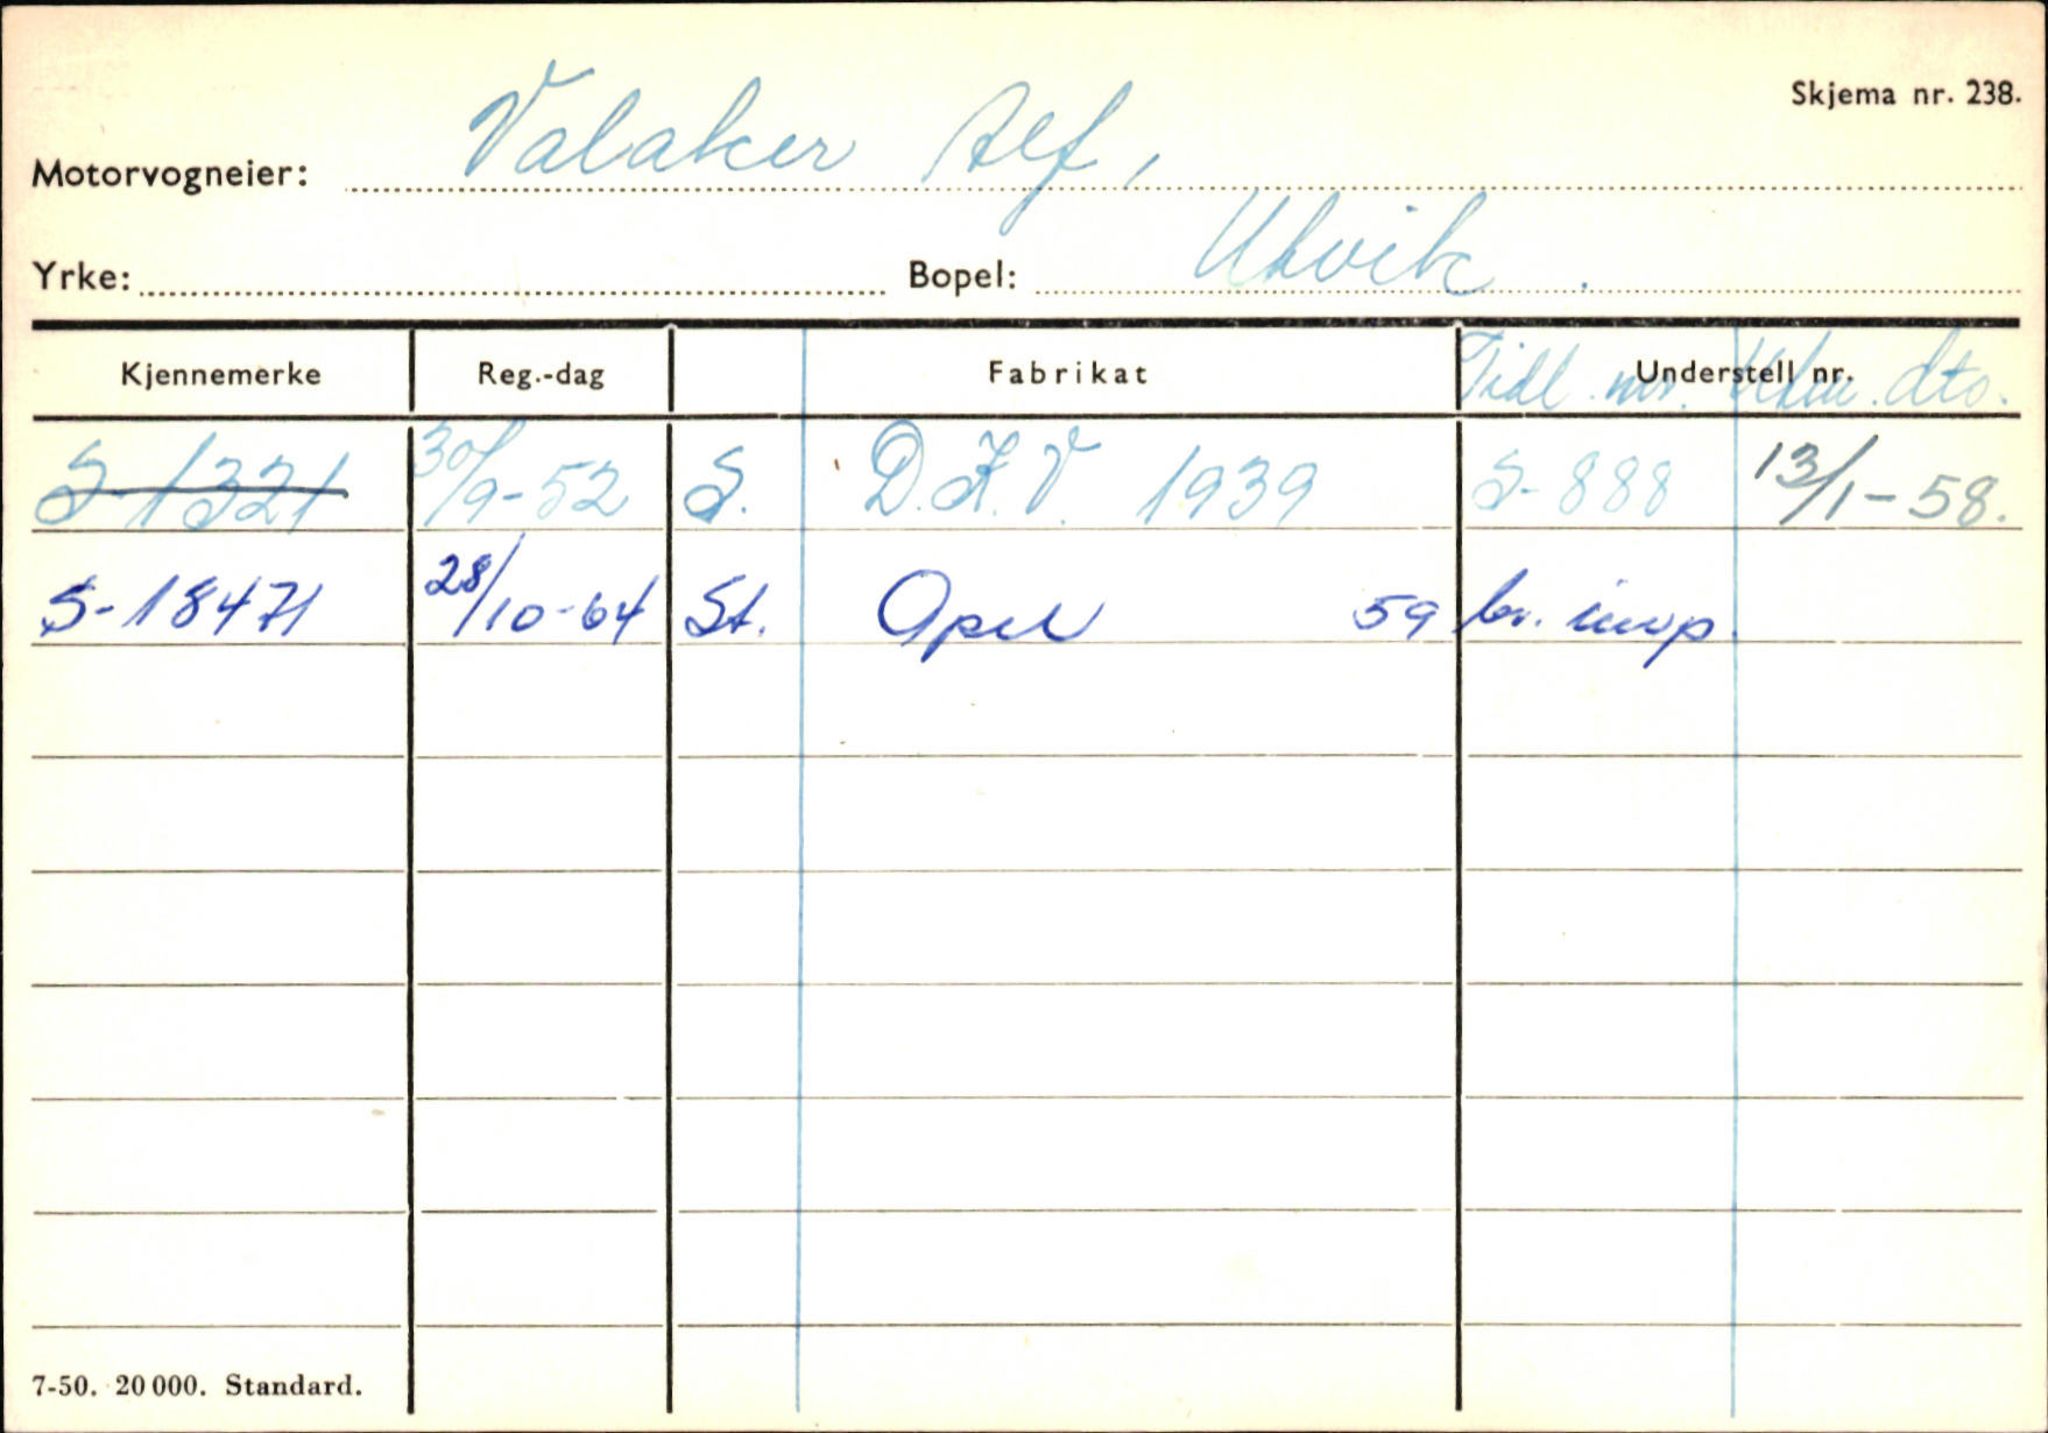 Skjema nr. 238.
Motorvogneier: Valaker Alf,
Yrke: Bopel: Utvik.
Kjennemerke Reg.-dag Fabrikat Understell nr. Tidl. nr. dto.
S-1321 30/9-52 S. D.K.V. 1939 S-888 13/1-58.
S-18471 28/10-64 St. Opel 59 br. imp.
7-50. 20 000. Standard.